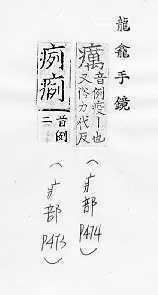 龍龕手鏡
癘音例疫丨也
又俗力代反
(疒部
P474)
痢𤶃首例
二
(疒部
P473)